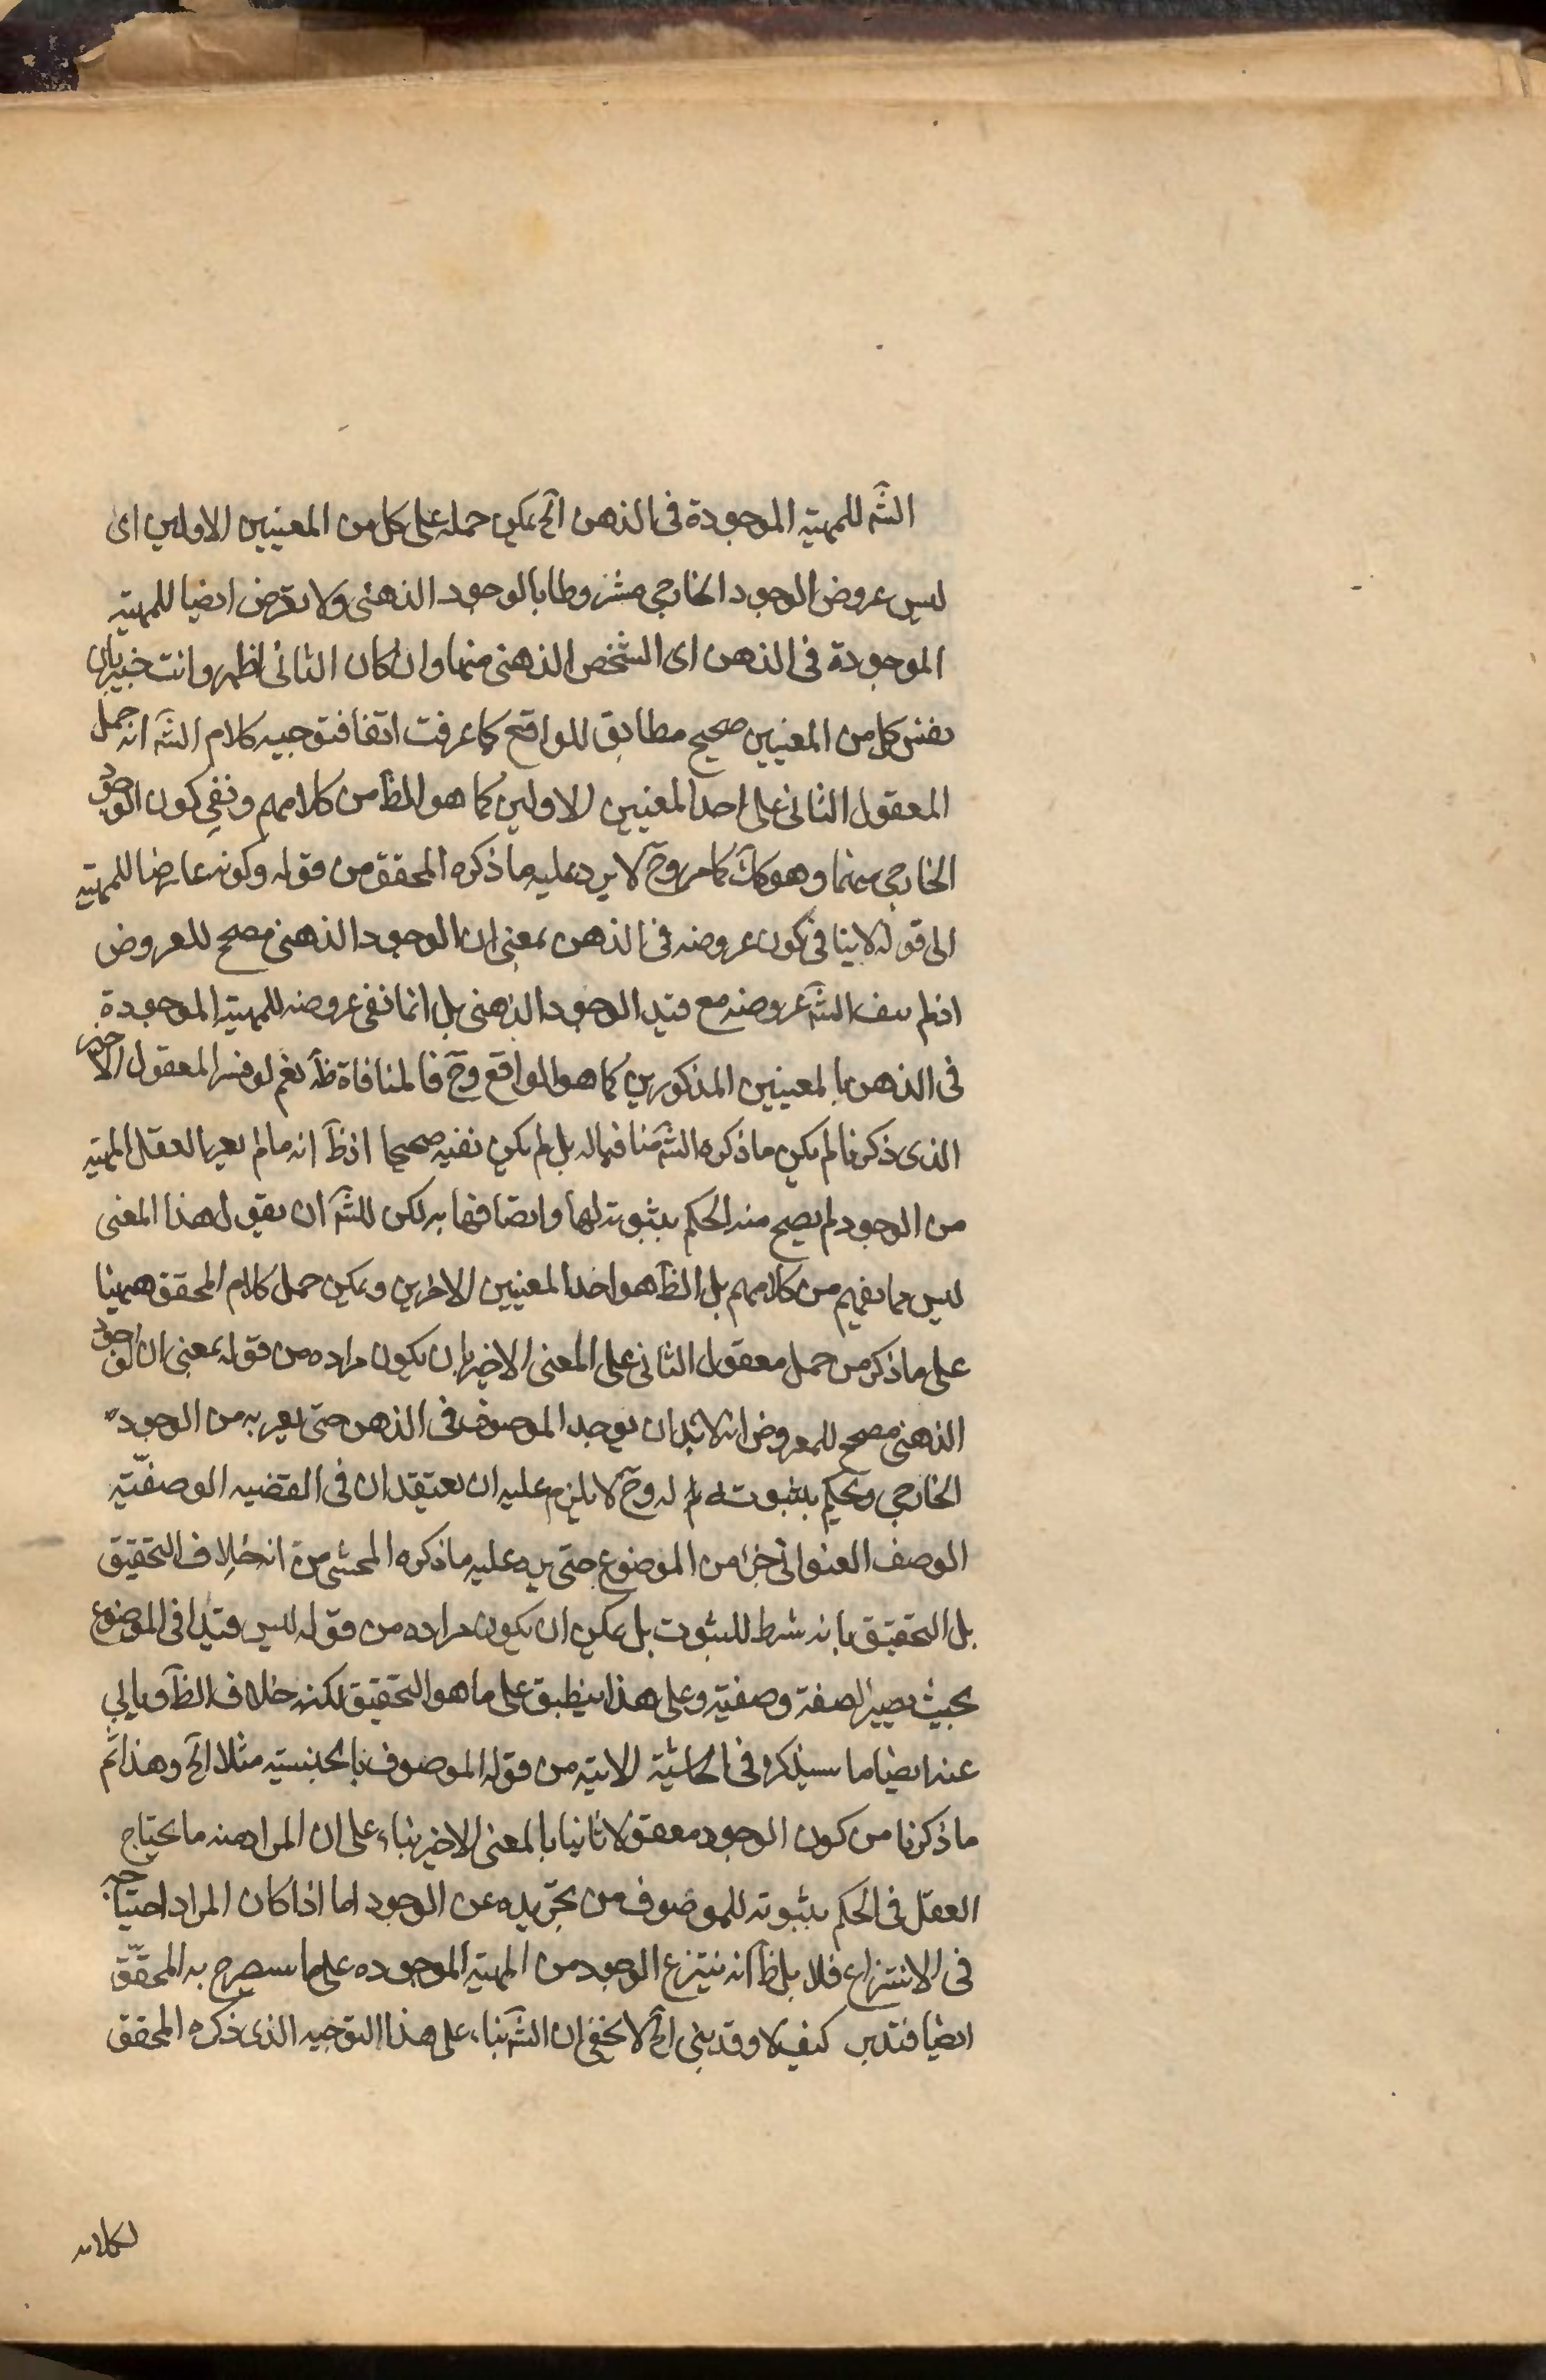 الشَّه للمهيته الموجودة فى الذهن آلخ يمكن حمله على كل من المعنيين الاولين اى
ليس عروض الوجود الخارجى مشروطا بالوجود الذهنى ولا يعرض ايضا للمهيته
الموجودة فى الذهن اى الشخص الذهنى منها وان كان الثانى اظهر وانت خبير بان
نفس كل من المعنيين صحيح مطابق للواقع كما عرفت انفا فتوجيه كلام الشَّه انه حمل
المعقول الثانى على احد المعنيين الاولين كما هو الظَّ من كلامهم ونفى كون الوجود
الخارجى منها وهو كَكَ كما مر وحَ لا يرد عليه ما ذكره المحقق من قوله وكونه عارضا للمهيته
الى قوله لا ينافى كون عروضه فى الذهن بمعنى ان الوجود الذهنى مصحح للعروض
اذ لم ينف الشَّه عروضه مع قيد الوجود الذهنى بل انما نفى عروضه للمهية الموجودة
فى الذهن بالمعنيين المذكورين كما هو الواقع وحَ فالمنافاة ظَه نعم لو فسر المعقول الاخير
الذى ذكرنا لم يكن ما ذكره الشَّه منافيا له بل لم يكن نفيه صحيحا اذ ظَ انه ما لم يعر العقل المهية
من الوجود لم يصح منه الحكم بثبوته لها واتصافها به لكن للشَّه ان يقول هذا المعنى
ليس مما يفهم من كلامهم بل الظَّ هو احد المعنيين الاخرين ويمكن حمل كلام المحقق ههنا
على ما ذكر من حمل معقول الثانى على المعنى الاخير بان يكون مراده من قوله بمعنى ان الوجود
الذهنى مصحح للعروض انه لابد ان يوجد الموصوف فى الذهن حتى يعريه من الوجود
الخارجى ويحكم بثبوته له وحَ لا يلزم عليه ان يعتقد ان فى القضيه الوصفيّه
الوصف العنوانى جزا من الموضوع حتى يرد عليه ما ذكره المحشى من انه خلاف التحقيق
بل التحقيق بانه شرط للثبوت بل يمكن ان يكون مراده من قوله ليس قيدا فى الموضوع
بحيث يصير الصفة وصفيته وعلى هذا ينطبق على ما هو التحقيق لكنه خلاف الظَّ ويابى
عنه ايضا ما سيذكره فى الحاشية الاتيه من قوله الموصوف بالجنسيته مثلا الخ وهذا ثم
ما ذكرنا من كون الوجود معقولا ثانيا بالمعنى الاخير بناء على ان المراد منه ما يحتاج
العقل فى الحكم بثبوته للموصوف من تجريده عن الوجود اما اذا كان المراد احتياجه
فى الانتزاع فلا بل ظَ انه ينتزع الوجود من المهية الموجوده على ما سيصرح به المحقّق
ايضا فتدبر كيف لا وقد بنى الخ لا يخفى ان الشَّه بناء على هذا التوجيه الذى ذكره المحقق
لكلامه